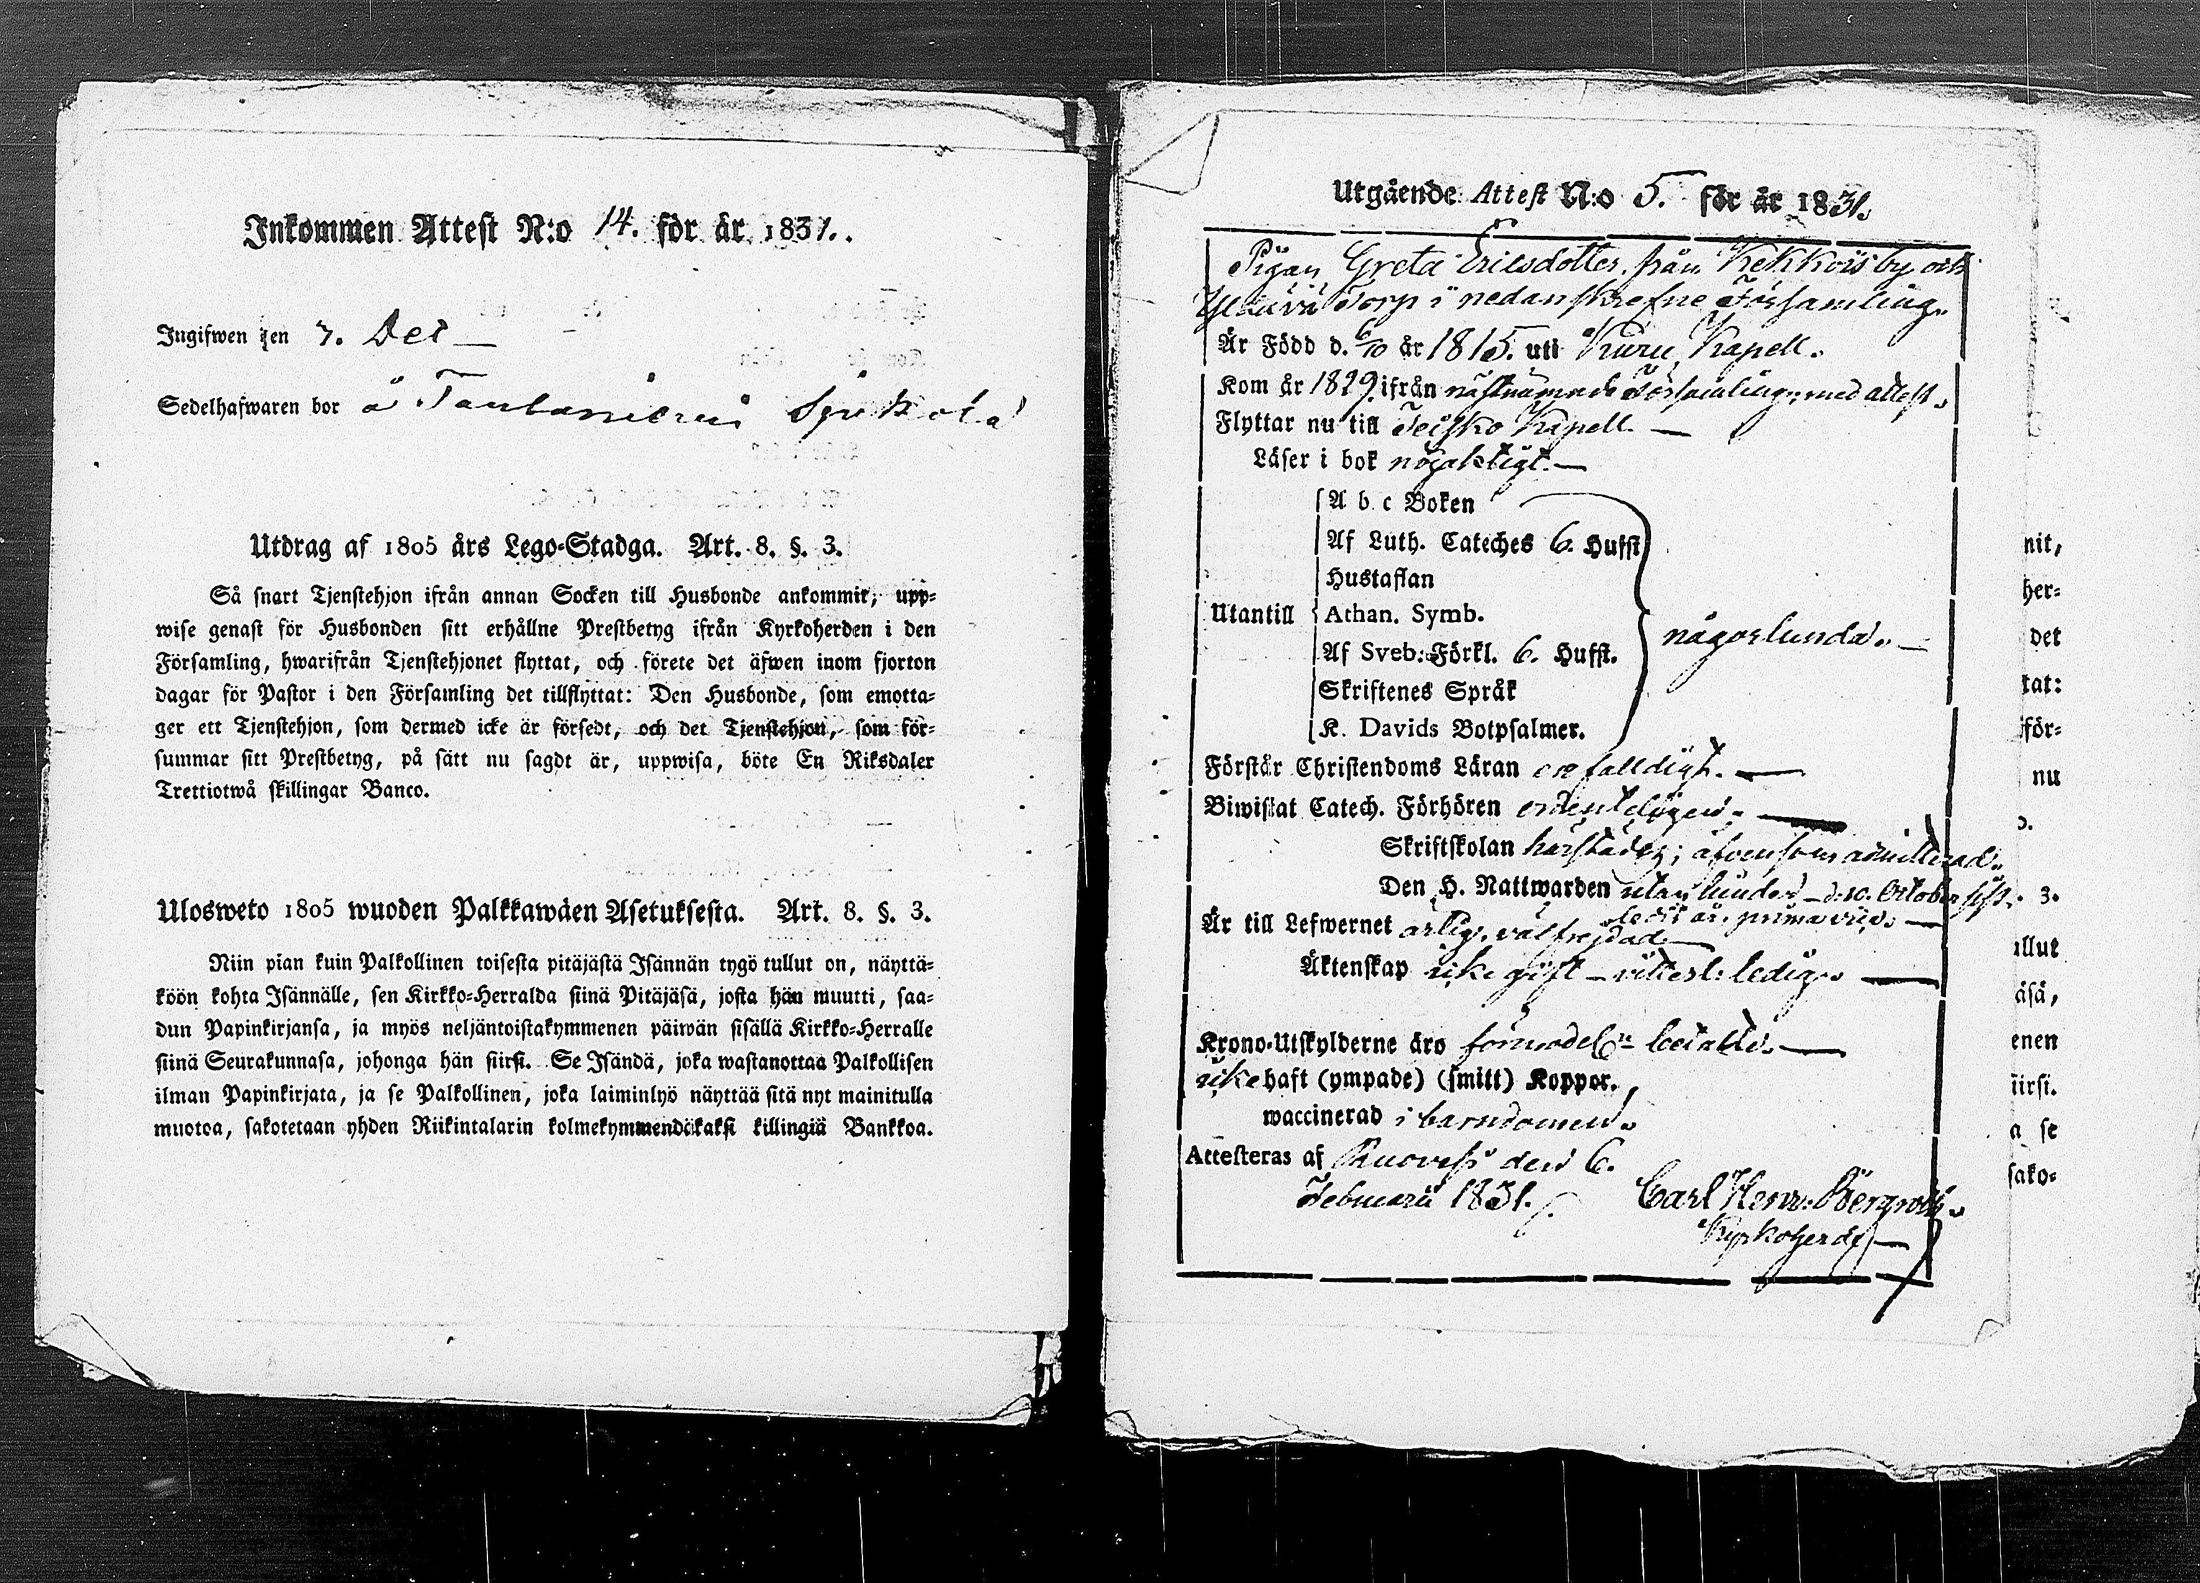 Inkommen Attest N:o 14. för år 1831.
Ingifwen den 7. Dec
Sedelhafwaren bor å
Utdrag af 1805 års Lego-Stadga. Art. 8. §. 3.
Så snart Tjenstehjon ifrån annan Socken till Husbonde ankommit, upp-
wise genast för Husbonden sitt erhållne Prestbetyg ifrån Kyrkoherden i den
Församling, hwarifrån Tjenstehjonet flyttat, och förete det äfwen inom fjorton
dagar för Pastor i den Församling det tillflyttat: Den Husbonde, som emotta-
ger ett Tjenstehjon, som dermed icke är försedt, och det Tjenstehjon, som för-
summar sitt Prestbetyg, på sätt nu sagdt är, uppwisa, böte En Riksdaler
Trettiotwå skillingar Banco.
Ulosweto 1805 wuoden Palkkawäen Asetuksesta. Art. 8. §. 3.
Niin pian kuin Palkollinen toisesta pitäjästä Isännän tygö tullut on, näyttä-
köön kohta Isännälle, sen Kirkko-Herralda siinä Pitäjäsä, josta hän muutti, saa-
dun Papinkirjansa, ja myös neljäntoistakymmenen päiwän sisällä Kirkko-Herralle
siinä Seurakunnasa, johonga hän siirsi. Se Isändä, joka wastanottaa Palkollisen
ilman Papinkirjata, ja se Palkollinen, joka laiminlyö näyttää sitä nyt mainitulla
muotoa, sakotetaan yhden Riikintalarin kolmekymmendäkaksi killingiä Bankkoa.
Utgående Attest N:o 5. för år 1831.
Pigan Greta Ericsdotter från Kekkois by och
Torp i nedanskrefne Församling.
Är Född d. 6/10 år 1815. uti Kuru Kapell.
Kom år 1829. ifrån nästnämnde Församling, med attest.
Flyttar nu till Teisko Kapell. —
Läser i bok nöjaktigt. —
A b c Boken
Af Luth. Cateches 6. Hufst
Hustaflan
Utantill Athan. Symb.
någorlunda. —
Af Sveb. Förkl. 6. Hufst.
Skriftenes Språk
K. Davids Botpsalmer.
Förstår Christendoms Läran enfalldigt. —
Biwistat Catech. Förhören ordenteligen. —
Skriftskolan härstädes; äfvensom admitterad.
Den H. Nattwarden utan hinder – d. 10. October sist.
Är till Lefwernet ärlig, välfrejdad. —
Äktenskap icke gift – ledig. —
Krono-Utskylderne äro förmodel:n betalte. —
icke haft (ympade) (smitt) Koppor,
waccinerad i barndomen.
Attesteras af Ruovesi den 6.
Februarii 1831.
Carl Henr: Bergroth.
Kyrkoherde —
nit,
her-
det
tat:
för-
nu
o.
3.
ullut
äsä,
enen
iirsi.
a se
sako-